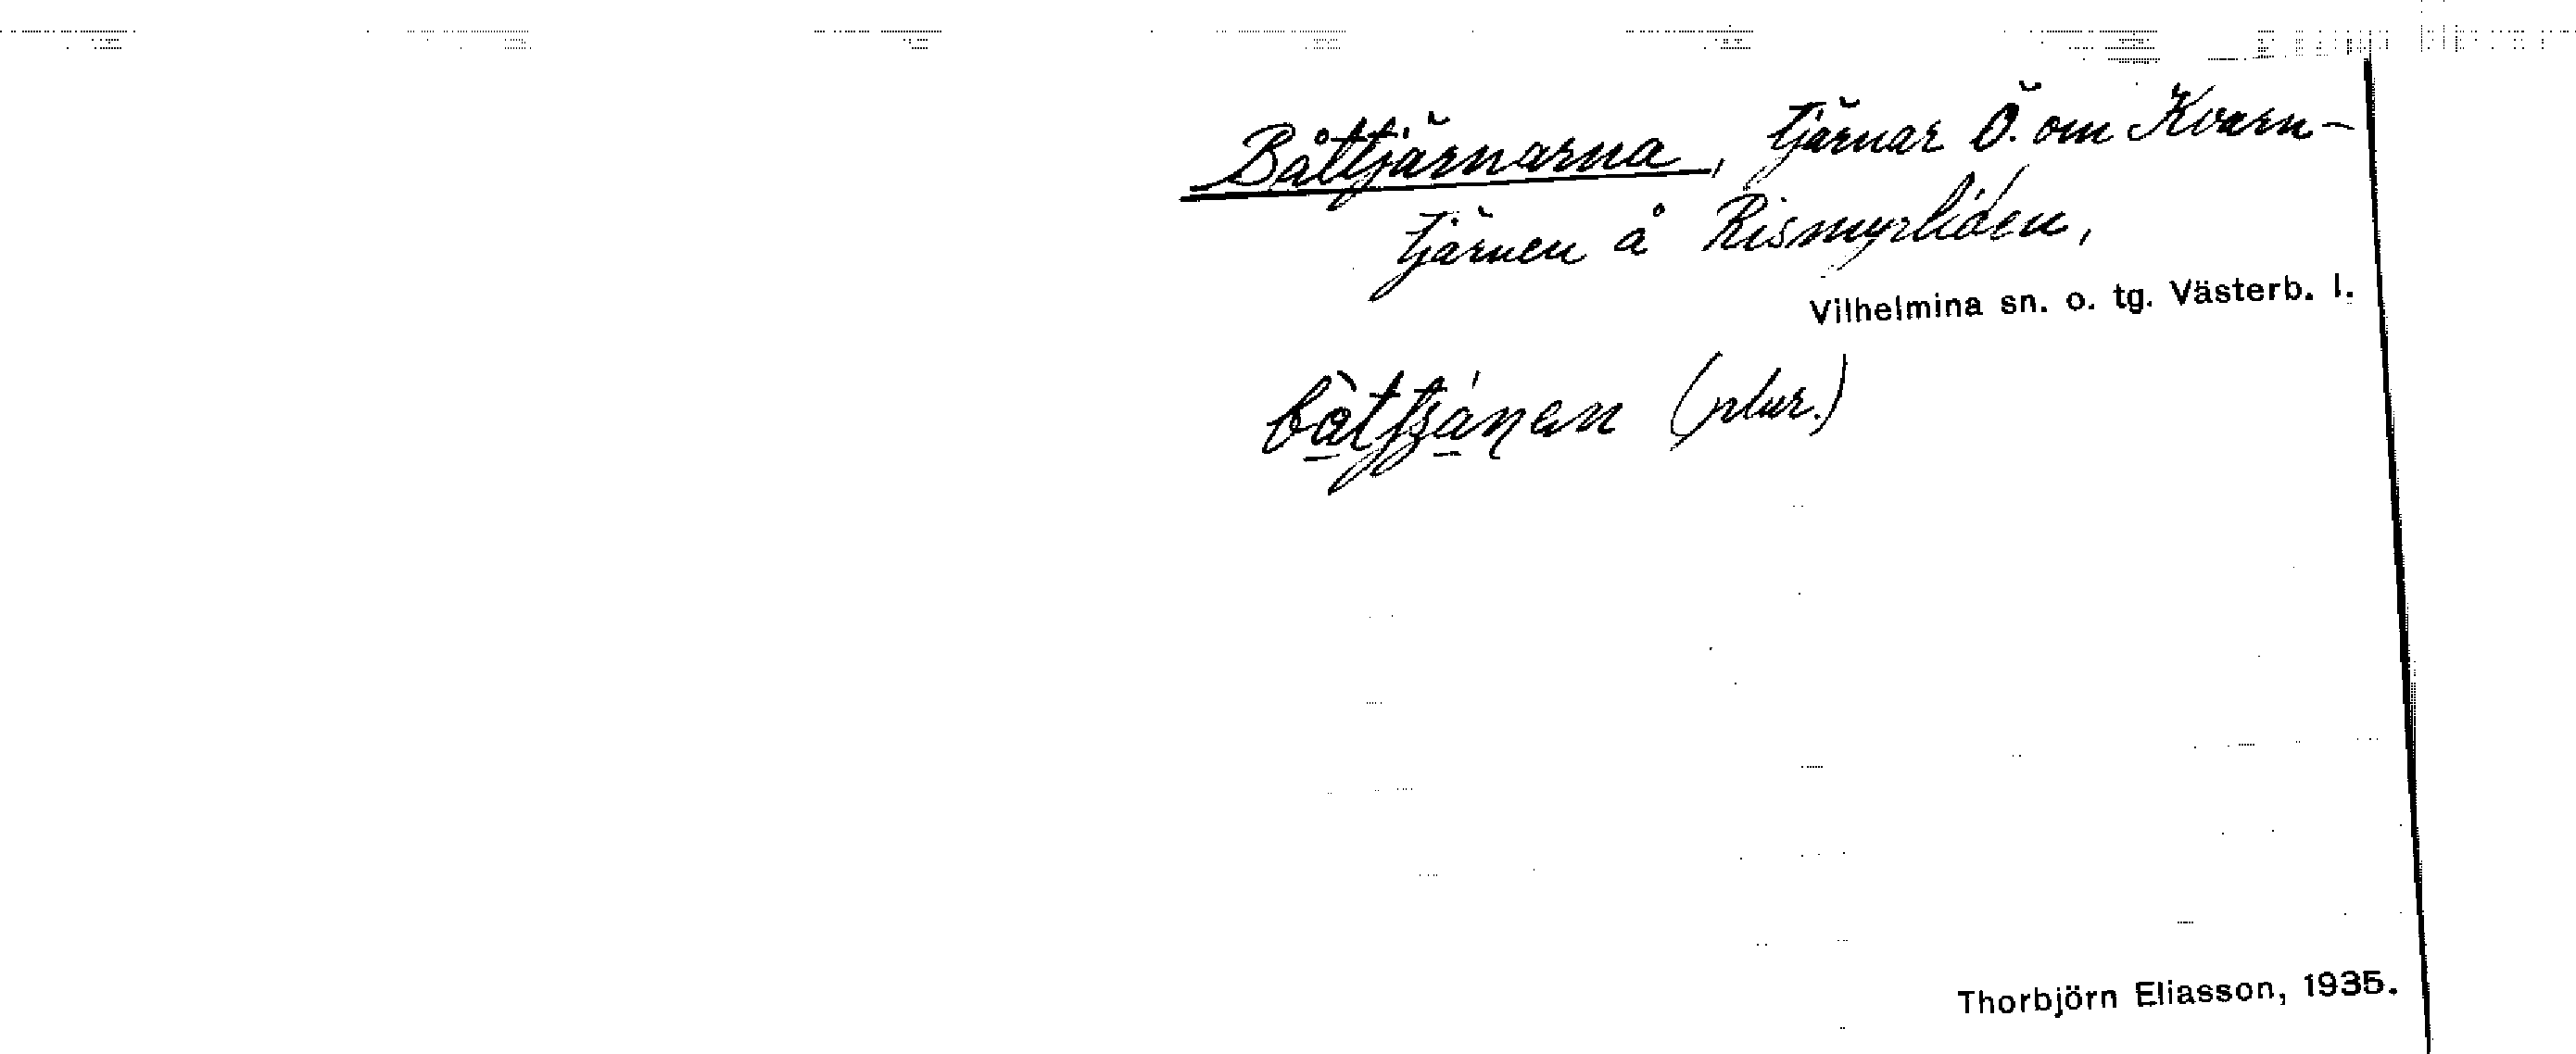 Båttjärnarna, tjärnar Ö. om Kvarn-
tjärnen å Rismyrliden,
Vilhelmina sn. o. tg. Västerb. l.
(plur.)
Thorbjörn Eliasson, 1935.